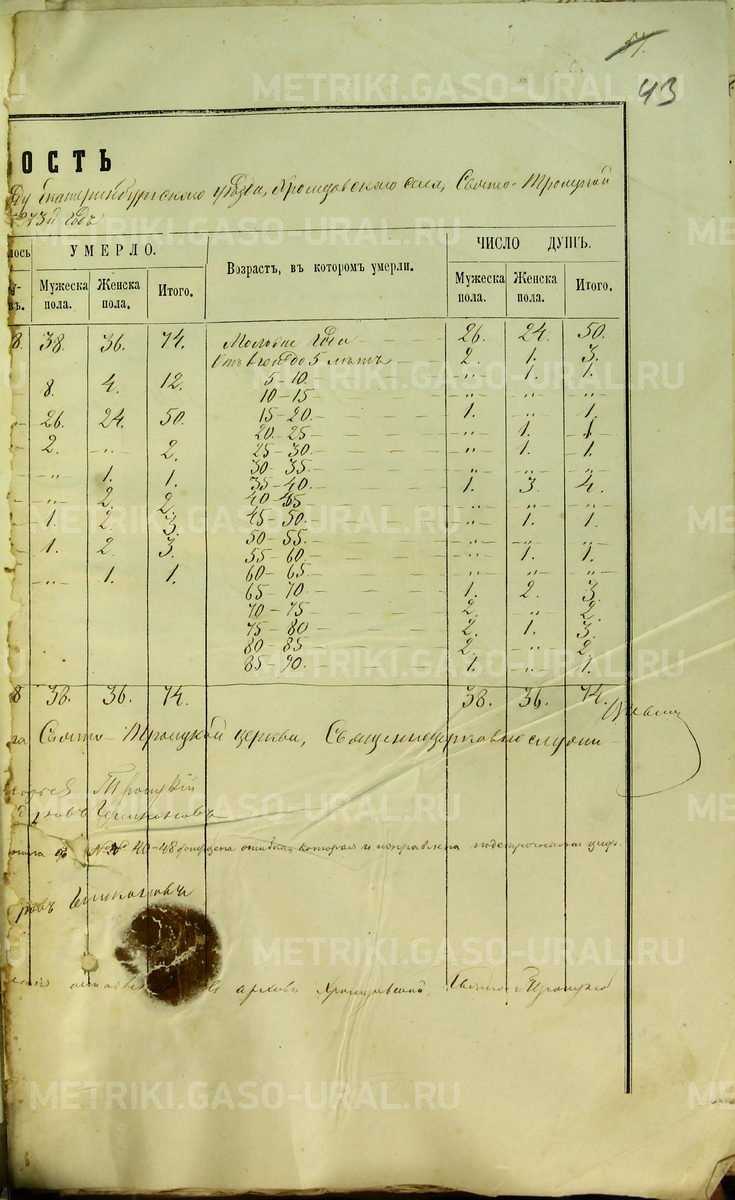 57.
43
ОСТЬ
Екатеринбургскаго уѣзда, села, Свято-Троицкой
73й годъ
лось
УМЕРЛО.
Возрастъ, въ которомъ умерли.
ЧИСЛО ДУШЪ.
Мужеска пола. Женска пола. Итого. Мужеска пола. Женска пола. Итого.
8 38. 36. 74. года 26. 24. 50.
Отъ 1 года до 5 лѣтъ 2. 1. 3.
8. 4. 12. 5-10. „ 1. 1.
10-15 „ „ „
26. 24. 50. 15-20. 1. „ 1.
20-25 „ 1. 1
2. „ 2. 25-30. „ 1. 1.
30-35. „ „ „
„ 1. 1. 35-40. 1. 3. 4.
„ 2. 2. 40-45 „ „ „
1. 2. 3. 45-50. „ 1. 1.
50-55 „ „ „
1. 2. 3. 55-60. „ 1. 1.
„ 1. 1. 60-65 „ „ „
65-70. 1. 2. 3.
70-75 2. „ 2.
75-80 2. 1. 3.
80-85 2. „ 2.
85-90. 1. „ 1.
8 38. 36. 74. 38. 36. 74.
Свято-Троицкой церкви, Священноцерковнослужи
Троицкій
№№ 40-48 допущена ошибка, которая и поправлена подстрочными циф.
архивѣ Свято-Троицкой
METRIKI.GASO-URAL.RU